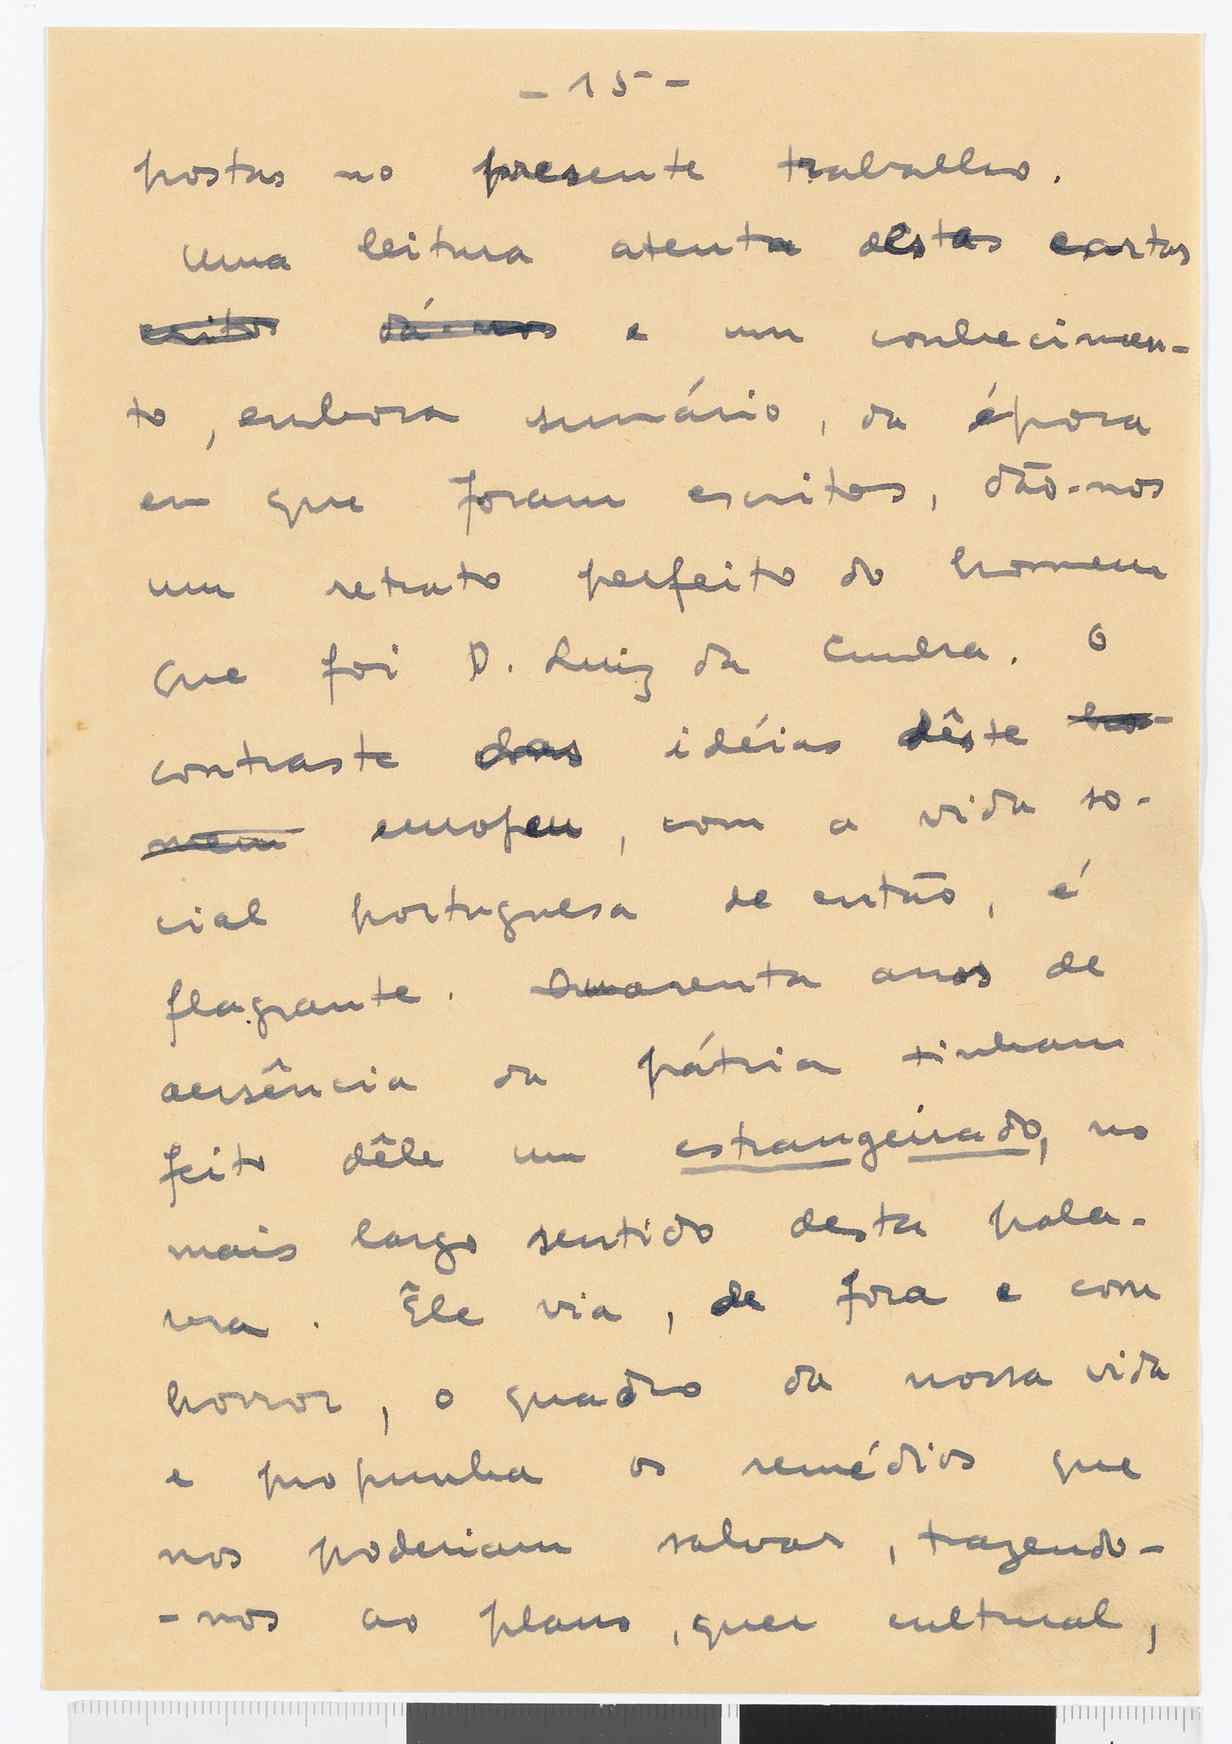 - 15 -
postas no presente trabalho.
Uma leitura atenta destas cartas
e um conhecimen-
to, embora sumário, da época
em que foram escritos, dão-nos
um retrato perfeito do homem
que foi D. Luiz da Cunha. O
contraste das idéias dêste ho-
mem europeu, com a vida so-
cial portuguesa de então, é
flagrante. Quarenta anos de
ausência da pátria tinham
feito dêle um estrangeirado, no
mais largo sentido desta pala-
vra. Êle via, de fora e com
horror, o quadro da nossa vida
e propunha os remédios que
nos poderiam salvar, trazendo-
-nos ao plano, quer cultural,